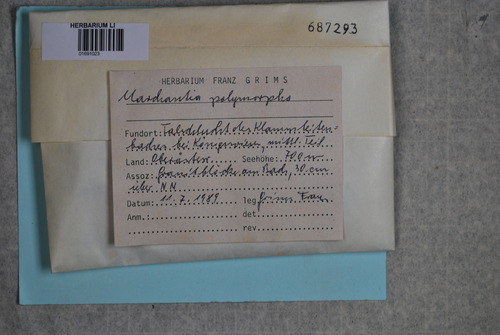 HERBARIUM LI
01091023
687293
HERBARIUM FRANZ GRIMS
Marchantia polymorpha
Fundort: Talschlucht des
baches bei mittl. Teil
Land: Oberösterr. Seehöhe:
Assoz: Granitblöcke am Bach, 30 cm
über N N
Datum: 11.7.1988 leg Grims Franz
Anm.: det
rev